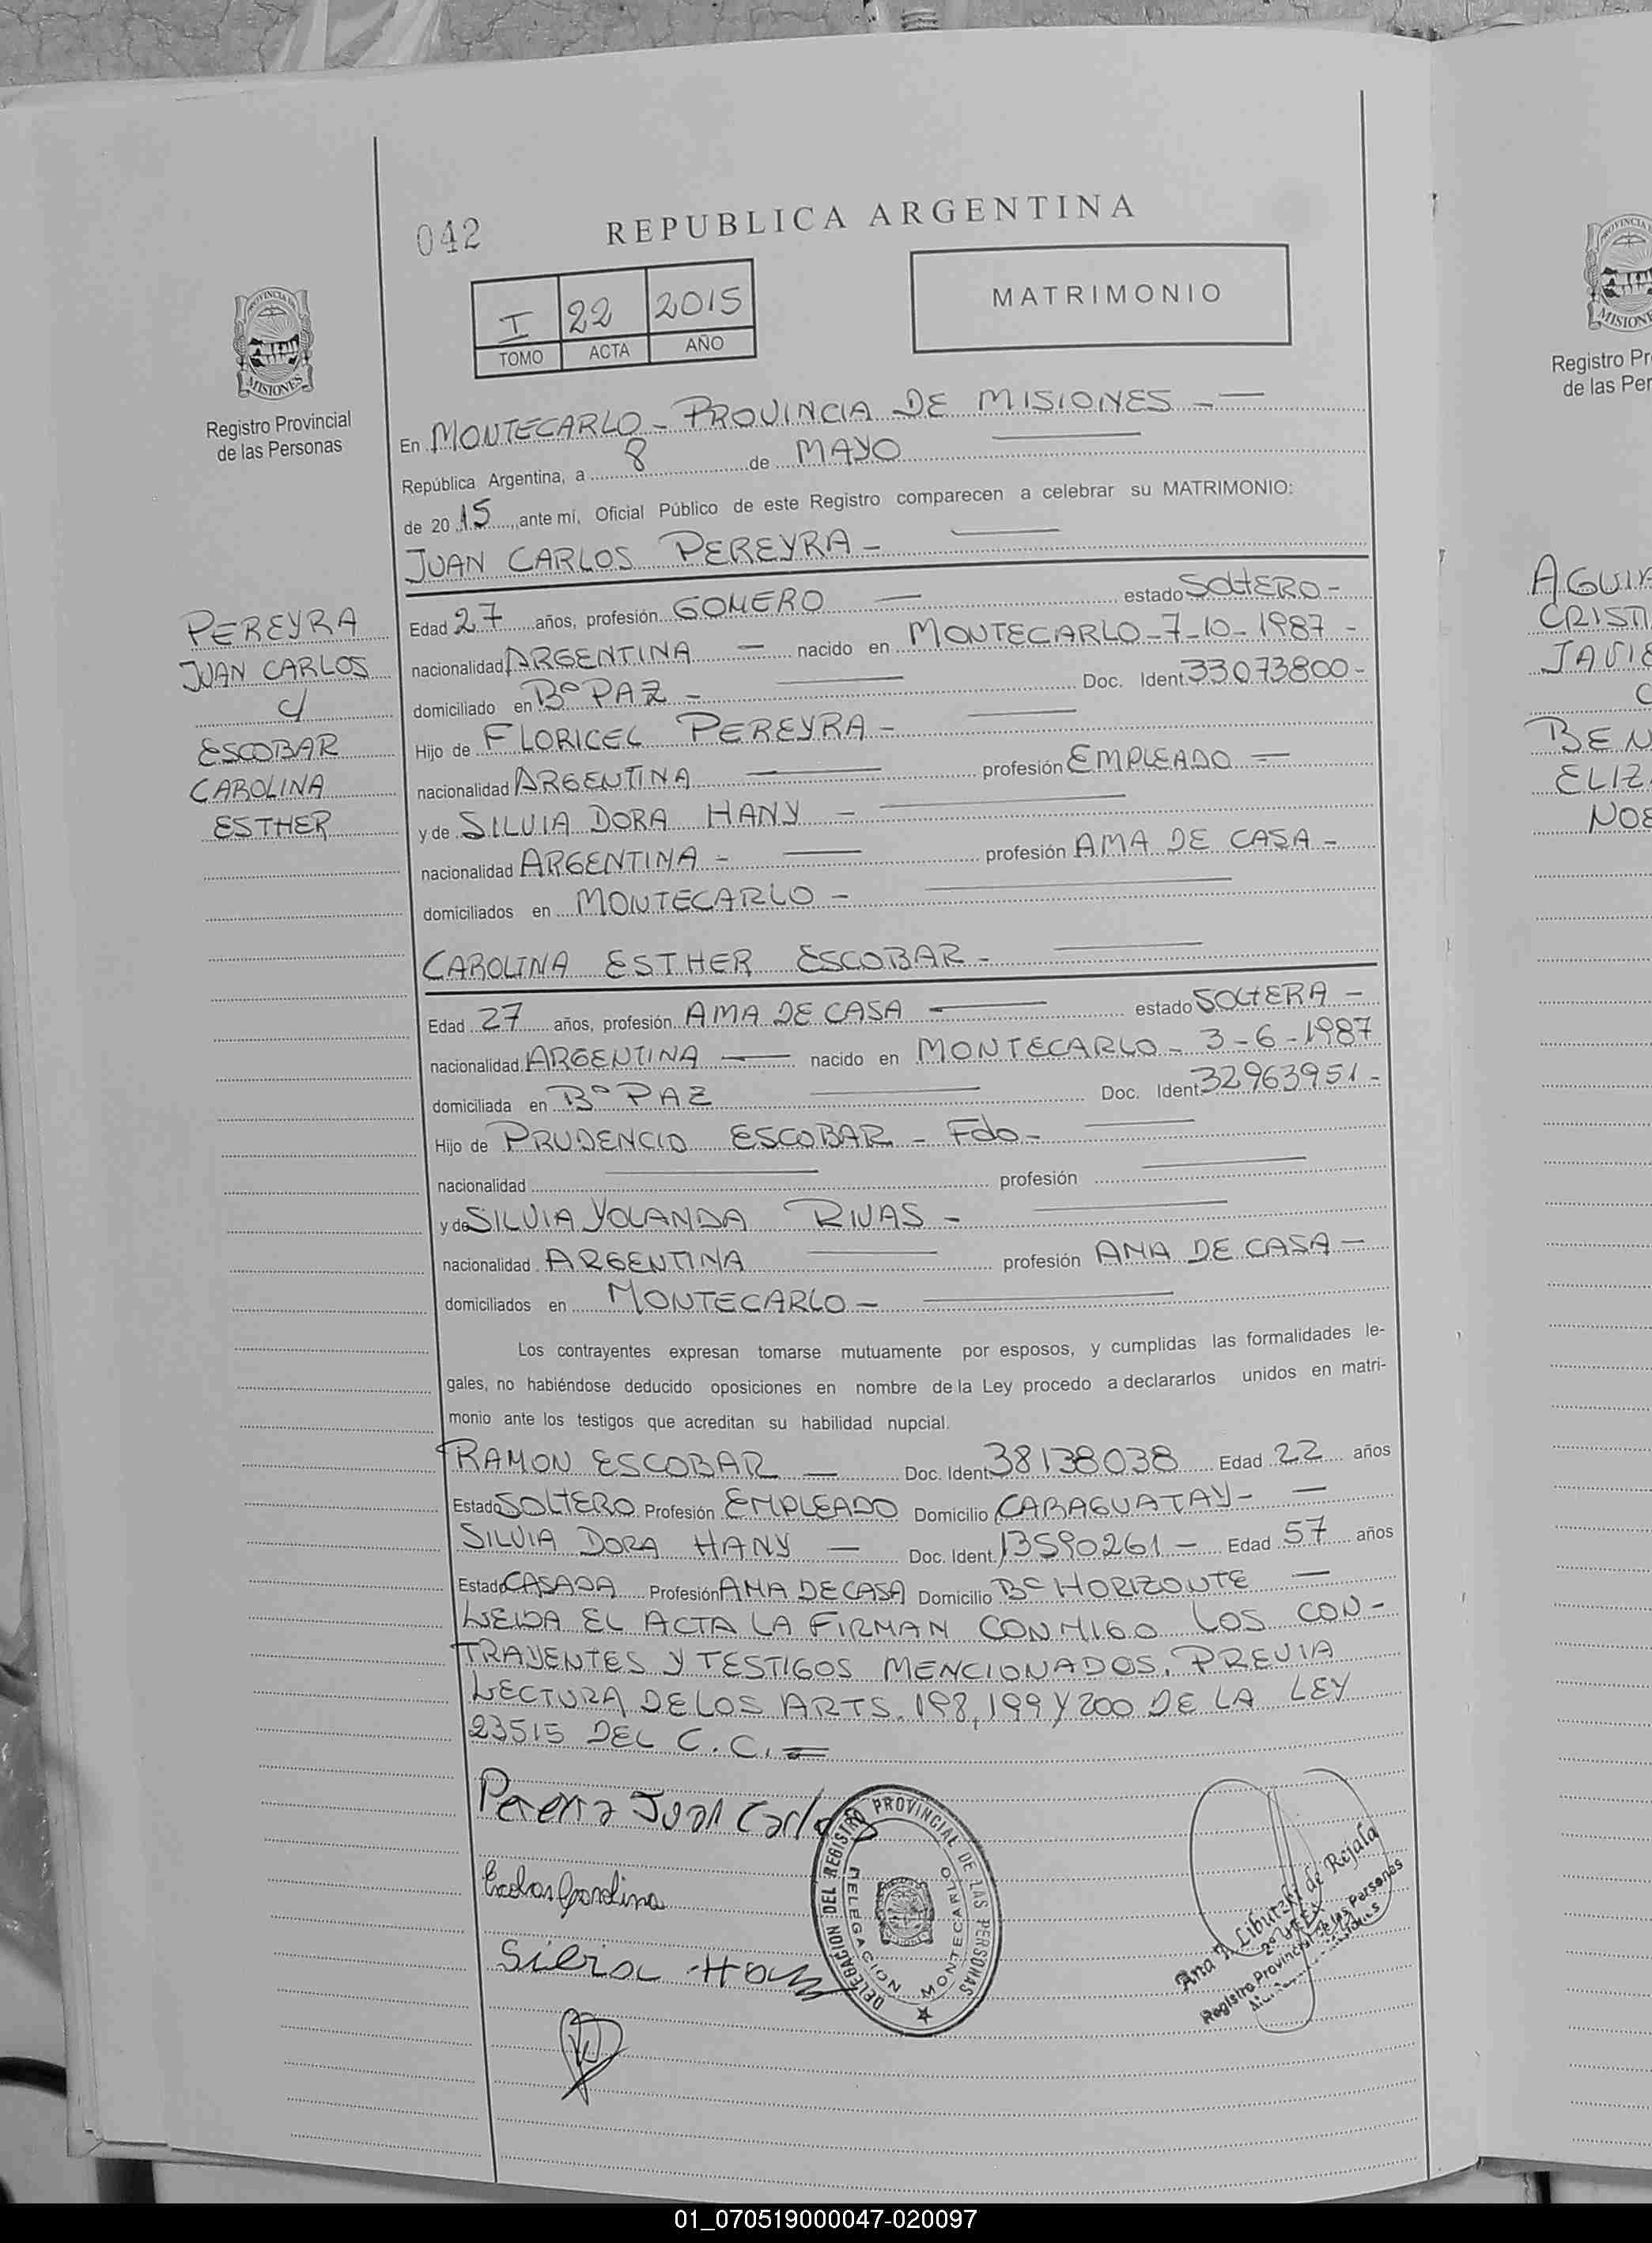 042
REPUBLICA ARGENTINA
I 22 2015
TOMO ACTA AÑO
MATRIMONIO
PROVINCIA DE
MISIONES
Registro Provincial
de las Personas
En MONTECARLO - PROVINCIA DE MISIONES -
República Argentina, a 8 de MAYO
de 2015, ante mí, Oficial Público de este Registro comparecen a celebrar su MATRIMONIO:
JUAN CARLOS PEREYRA -
PEREYRA
JUAN CARLOS
c/
ESCOBAR
CAROLINA
ESTHER
Edad 27 años, profesión GOMERO estado SOLTERO -
nacionalidad ARGENTINA nacido en MONTECARLO - 7-10-1987 -
domiciliado en Bº PAZ - Doc. Ident. 33073800 -
Hijo de FLORICEL PEREYRA -
nacionalidad ARGENTINA profesión EMPLEADO
y de SILVIA DORA HANY -
nacionalidad ARGENTINA - profesión AMA DE CASA -
domiciliados en MONTECARLO -
CAROLINA ESTHER ESCOBAR -
Edad 27 años, profesión AMA DE CASA estado SOLTERA -
nacionalidad ARGENTINA nacido en MONTECARLO - 3-6-1987
domiciliada en Bº PAZ Doc. Ident. 32963951 -
Hijo de PRUDENCIO ESCOBAR - Fdo -
nacionalidad profesión
y de SILVIA YOLANDA RIVAS -
nacionalidad ARGENTINA profesión AMA DE CASA -
domiciliados en MONTECARLO -
Los contrayentes expresan tomarse mutuamente por esposos, y cumplidas las formalidades le-
gales, no habiéndose deducido oposiciones en nombre de la Ley procedo a declararlos unidos en matri-
monio ante los testigos que acreditan su habilidad nupcial.
RAMON ESCOBAR - Doc. Ident. 38138038 Edad 22 años
Estado SOLTERO Profesión EMPLEADO Domicilio CARAGUATAY -
SILVIA DORA HANY - Doc. Ident. 13590261 - Edad 57 años
Estado CASADA Profesión AMA DE CASA Domicilio Bº HORIZONTE
LEIDA EL ACTA LA FIRMAN CONMIGO LOS CON-
TRAYENTES Y TESTIGOS MENCIONADOS. PREVIA
LECTURA DE LOS ARTS. 198, 199 Y 200 DE LA LEY
23515 DEL C.C. =
Pereyra Juan Carlos
Escobar Carolina
Silvia Hany
DELEGACION DEL REGISTRO PROVINCIAL DE LAS PERSONAS
DELEGACION MONTECARLO
Registro Provincial de las Personas
Registro Pr
de las Per
AGUI
CRISTI
JAVIE
C
BEN
ELIZ
NOE
01_070519000047-020097